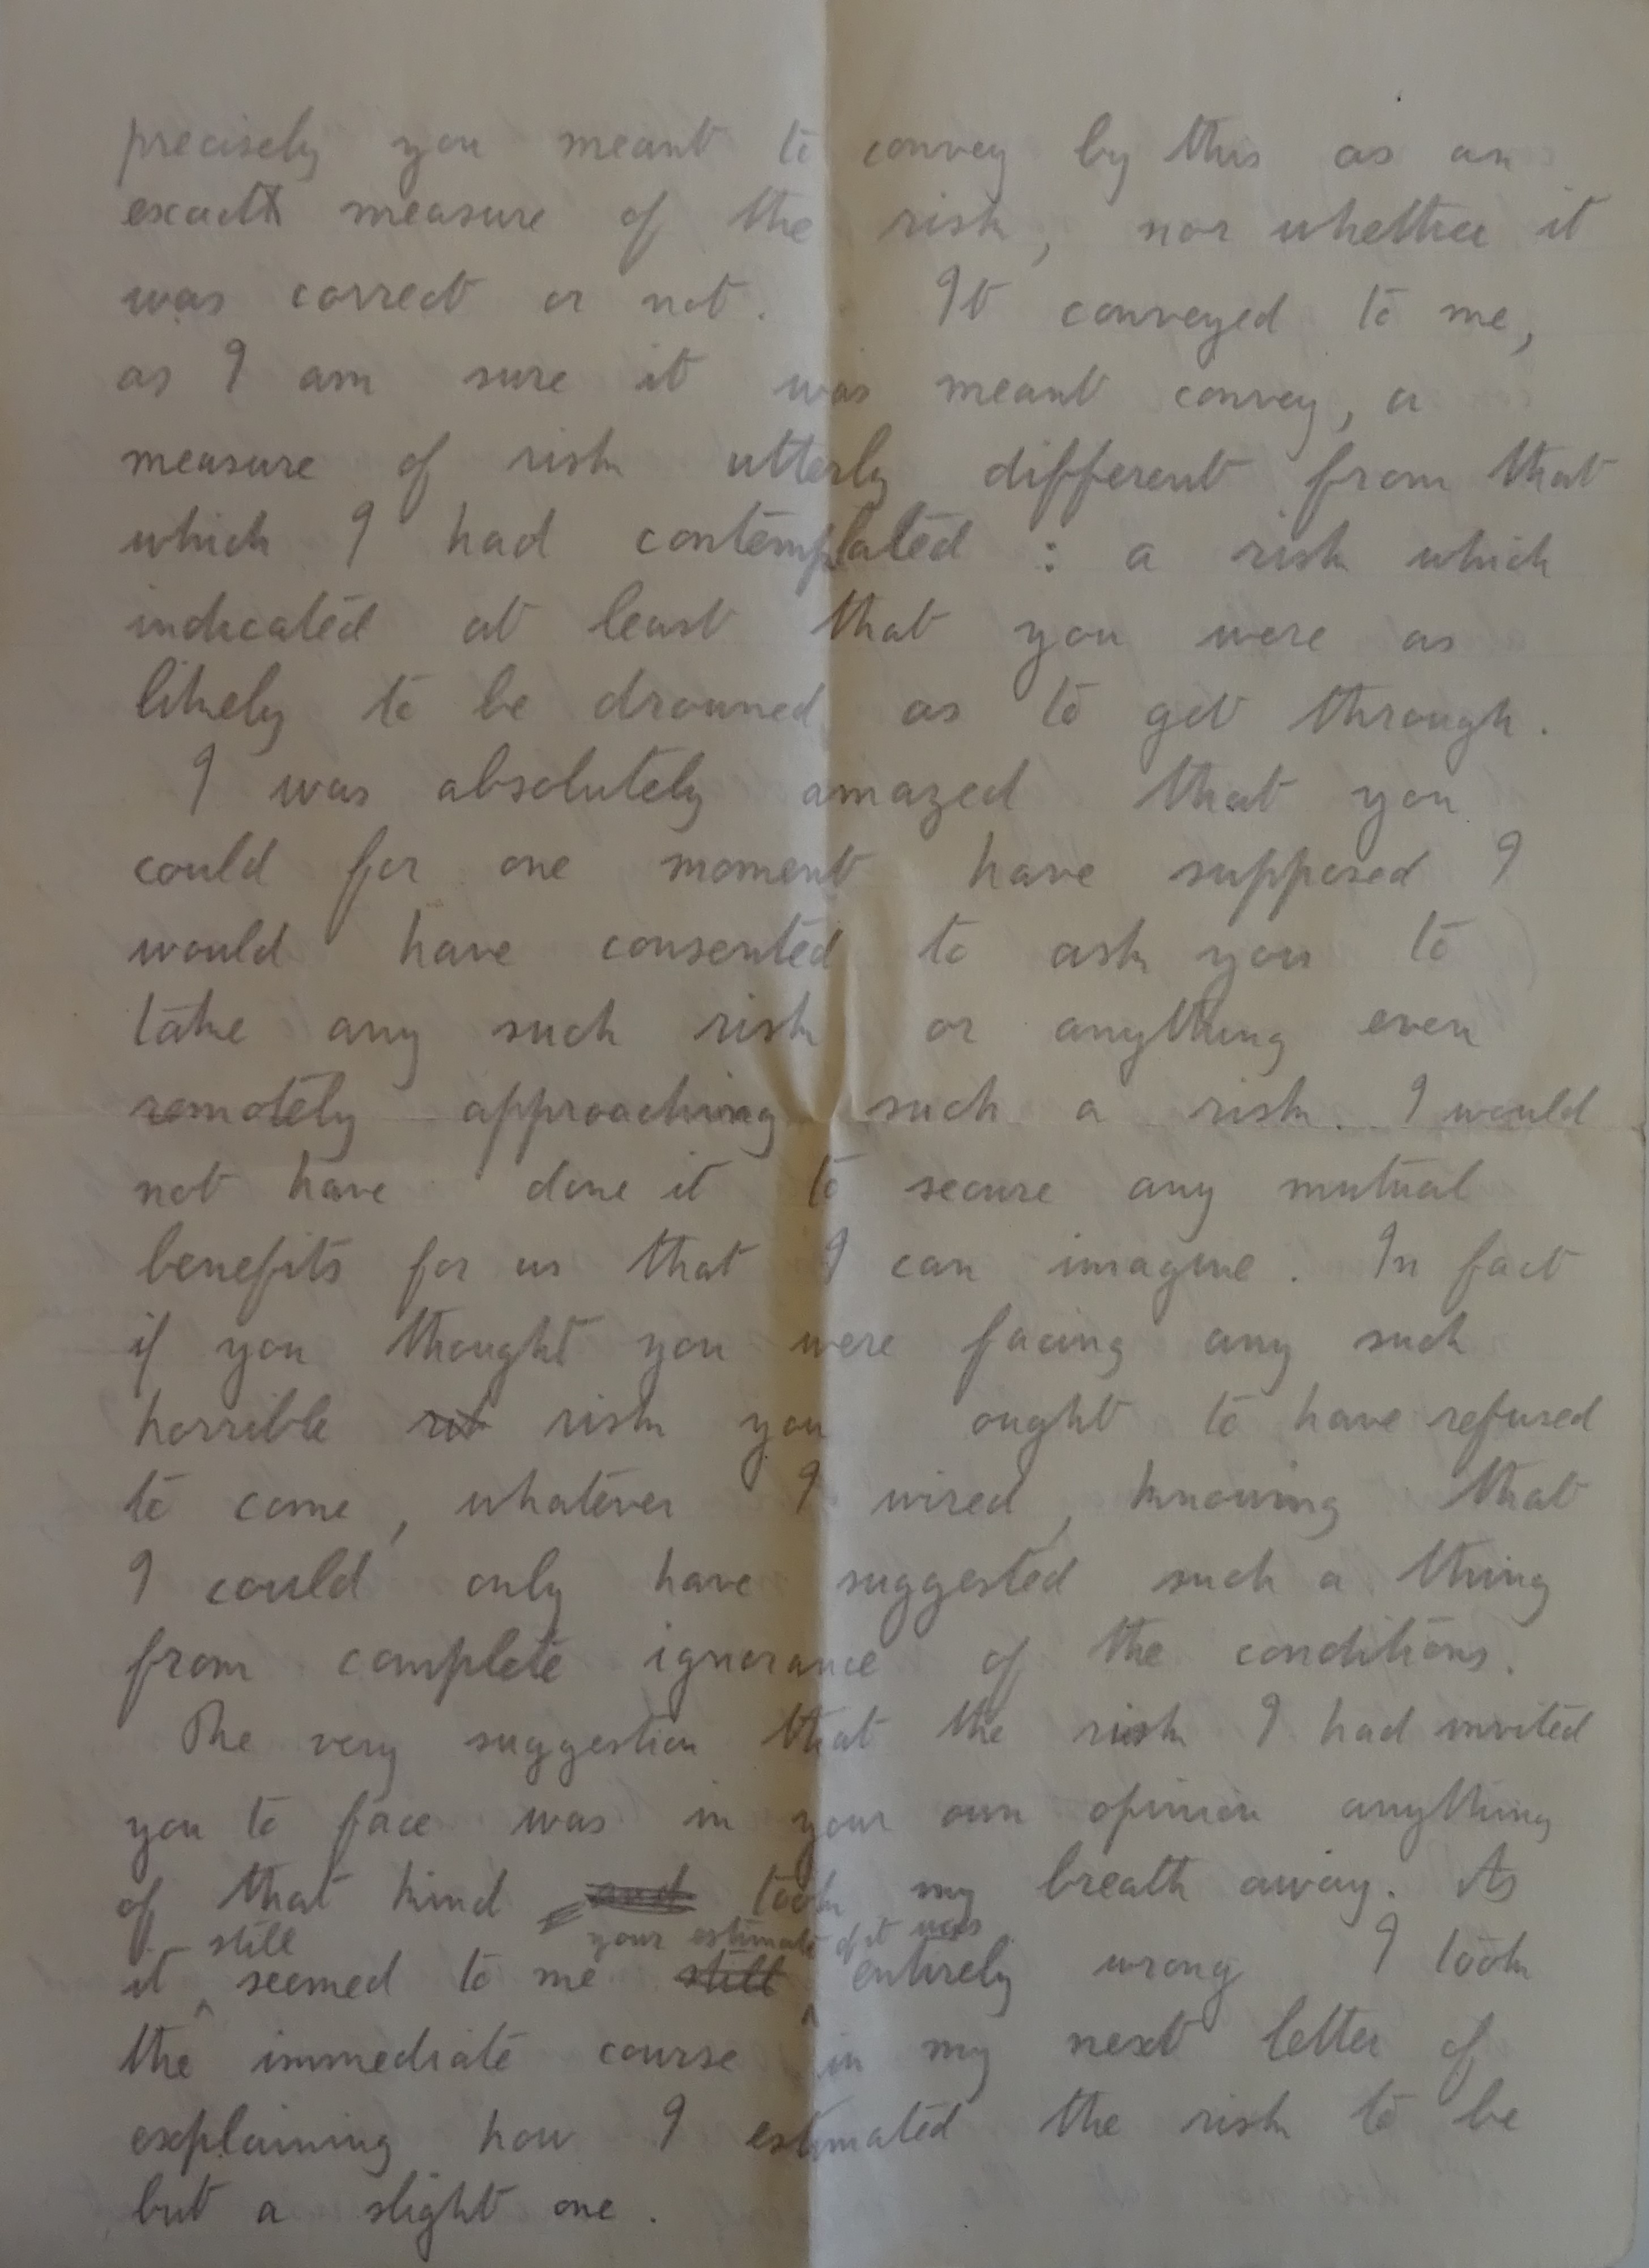 precisely you meant to convey by this as an
exact measure of the risk, nor whether it
was correct or not. It conveyed to me,
as I am sure it was meant convey, a
measure of risk utterly different from that
which I had contemplated : a risk which
indicated at least that you were as
likely to be drowned as to get through.
I was absolutely amazed that you
could for one moment have supposed I
would have consented to ask you to
take any such risk or anything even
remotely approaching such a risk. I would
not have done it to secure any mutual
benefits for us that I can imagine. In fact
if you thought you were facing any such
horrible ris risk you ought to have refused
to come, whatever I wired, knowing that
I could only have suggested such a thing
from complete ignorance of the conditions.
The very suggestion that the risk I had invited
you to face was in your own opinion anything
of that kind and took my breath away. As
still your estimate of it was
it seemed to me still entirely wrong I took
the immediate course in my next letter of
explaining how I estimated the risk to be
but a slight one.